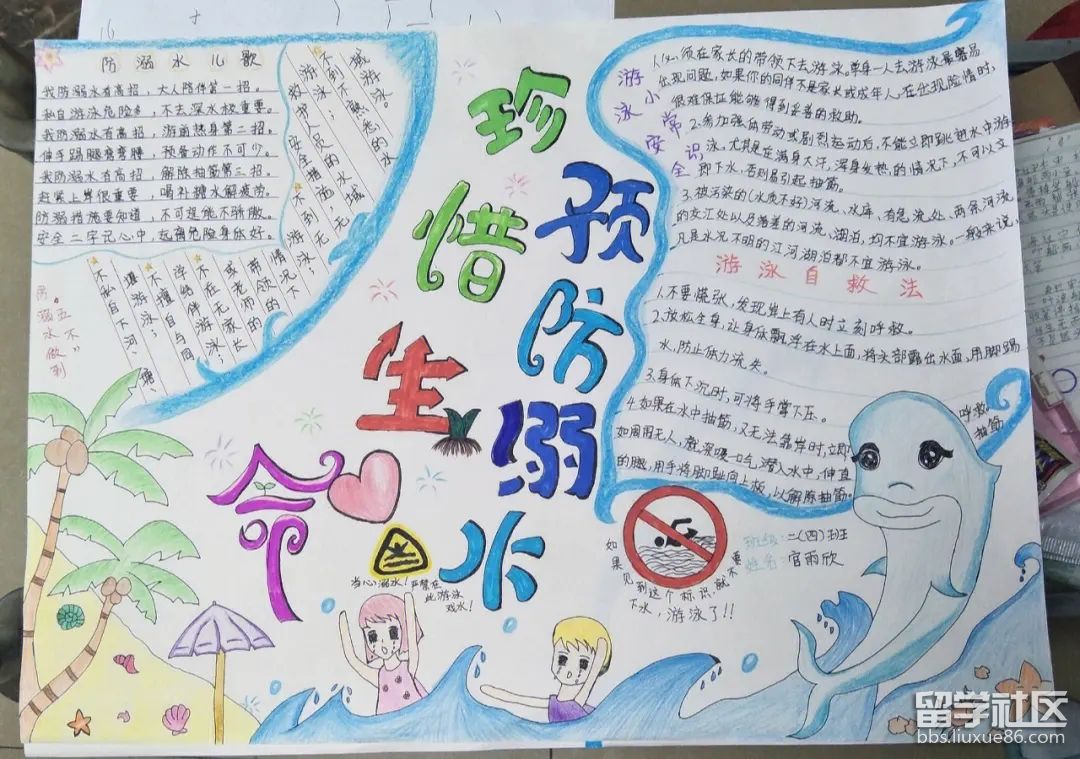 防溺水儿歌
我防溺水有高招，大人陪伴第一招。
私自游泳危险多，不去深水极重要。
我防溺水有高招，游前热身第二招。
伸手踢腿弯弯腰，预备动作不可少。
我防溺水有高招，解除抽筋第三招。
赶紧上岸很重要，喝补糖水解疲劳。
防溺措施要知道，不可逞能不骄傲。
安全二字记心中，远离危险身体好。
防溺水
“五不”
做到
不私自下河、塘、
堰游泳；
不擅自与同
伴结伴游泳；
不在无家长
或老师的
带领的
情况下
游泳；
不到无
安全措施，无
救护人员的水域
游泳；
不到不熟悉的水
域游泳。
珍惜生命
预防溺水
游泳小常识
安全
1.必须在家长的带领下去游泳。单身一人去游泳最容易
出现问题，如果你的同伴不是家长或成年人，在出现险情时，
很难保证能够得到妥善的救助。
2.参加强体劳动或剧烈运动后，不能立即跳进水中游
泳，尤其是在满身大汗，浑身发热的情况下，不可以立
即下水，否则易引起抽筋。
3.被污染的(水质不好)河流、水库、有急流处、两条河流
的交汇处以及落差的河流、湖泊，均不宜游泳。一般来说，
凡是水况不明的江河湖泊都不宜游泳。
游泳自救法
1.不要慌张，发现岸上有人时立刻呼救。
2.放松全身，让身体飘浮在水上面，将头部露出水面，用脚踢
水，防止体力流失。
3.身体下沉时，可将手掌下压。
4.如果在水中抽筋，又无法靠岸时，立即
呼救。
如周围无人，就深吸一口气，潜入水中，伸直
抽筋
的腿，用手将脚趾向上扳，以解除抽筋。
当心溺水！
严禁在
此游泳
戏水！
如果见到这个标识就不要
下水，游泳了!!
班级：二(四)班
姓名：官雨欣
留学社区
bbs.liuxue86.com